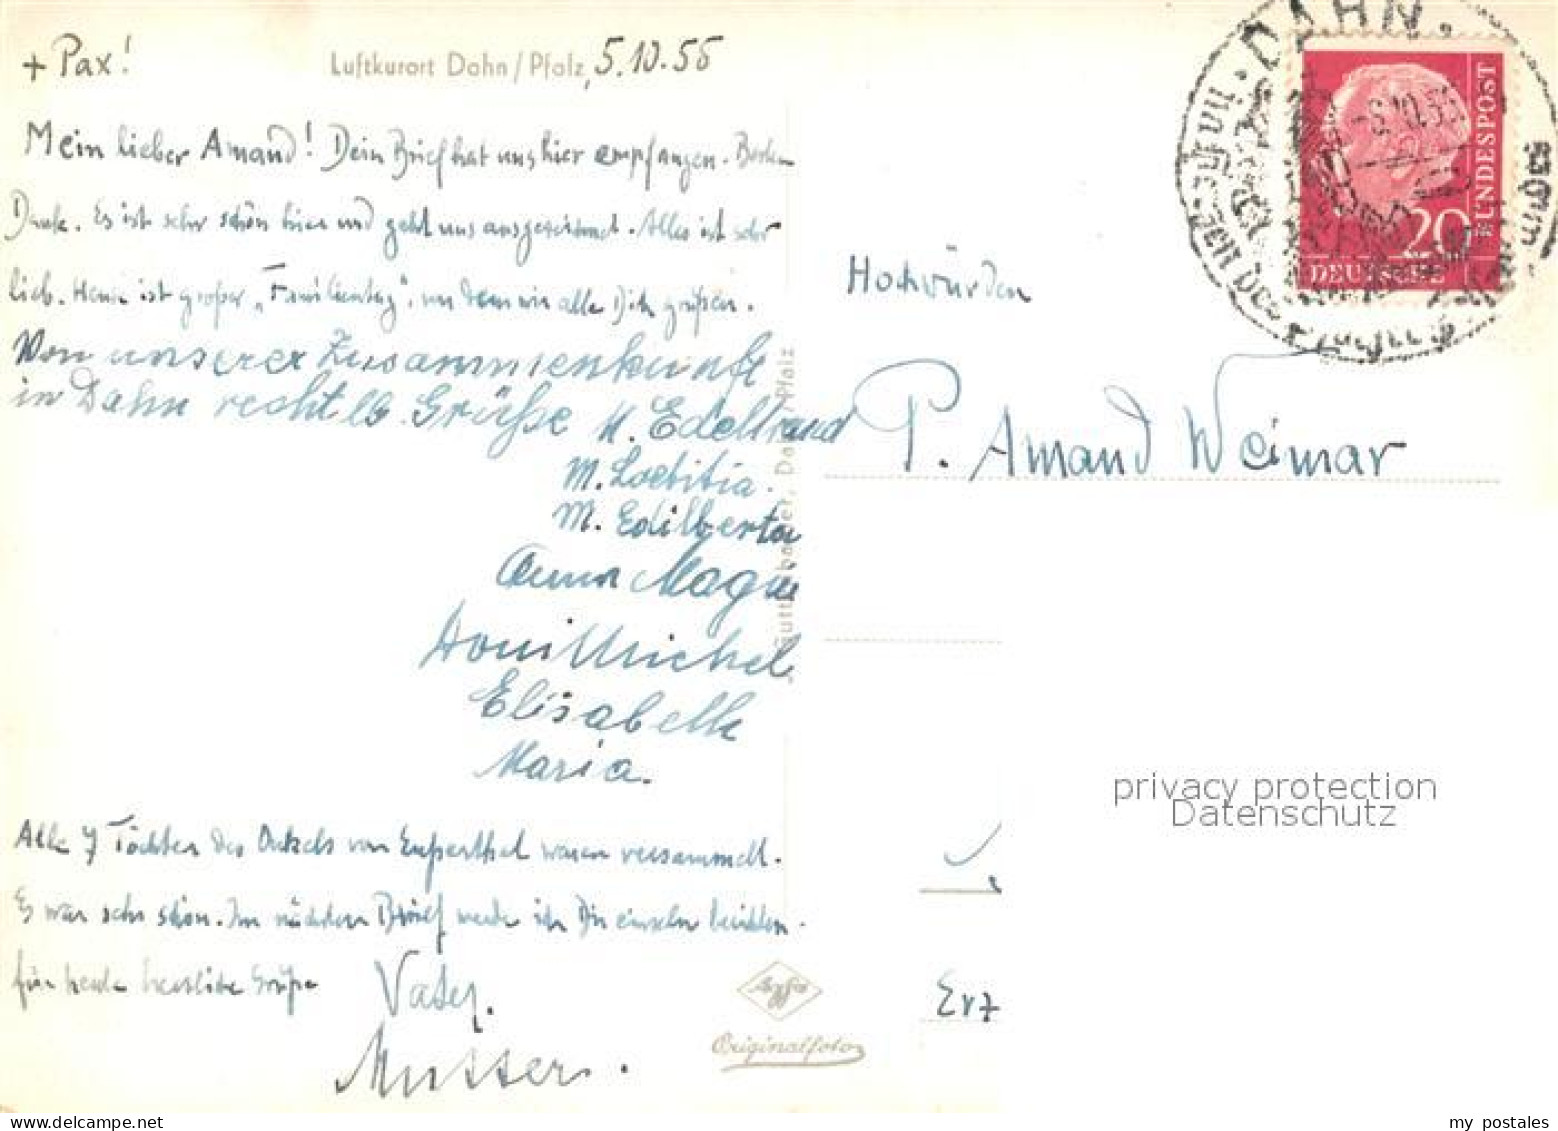 + Pax!
Luftkurort Dahn/Pfalz, 5.10.55
Mein lieber Amand! Dein Brief hat uns hier empfangen. Besten
Dank. Es ist sehr schön hier und geht uns ausgezeichnet. Alles ist sehr
lieb. Heute ist großer „Familientag", an dem wir alle Dich grüßen.
Von unserer Zusammenkunft
in Dahn recht lb. Grüße M. Edeltraud
M. Loetitia.
M. Edilberta
Anna Magna
Michel
Elisabeth
Maria.
Alle 7 Töchter des Onkels von Eußerthal waren versammelt.
Es war sehr schön. Im nächsten Brief werde ich Dir einzeln berichten.
für heute herzliche Grüße Vater.
Mutter.
Dahn/Pfalz
Agfa
Originalfoto
DAHN
-6.10.55
DEUTSCHE
BUNDESPOST
20
Hochwürden
P. Amand Weimar
Erz
privacy protection
Datenschutz
my postales